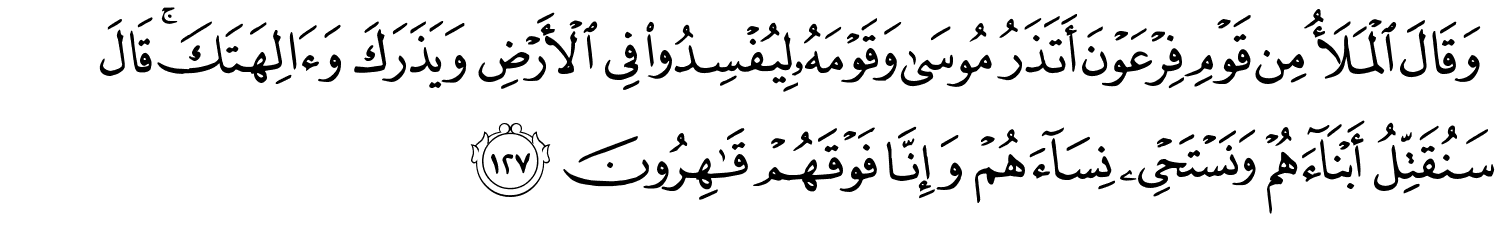 وَقَالَ ٱلْمَلَأُ مِن قَوْمِ فِرْعَوْنَ أَتَذَرُ مُوسَىٰ وَقَوْمَهُۥ لِيُفْسِدُوا۟ فِى ٱلْأَرْضِ وَيَذَرَكَ وَءَالِهَتَكَ ۚ قَالَ
سَنُقَتِّلُ أَبْنَآءَهُمْ وَنَسْتَحْىِۦ نِسَآءَهُمْ وَإِنَّا فَوْقَهُمْ قَـٰهِرُونَ ١٢٧